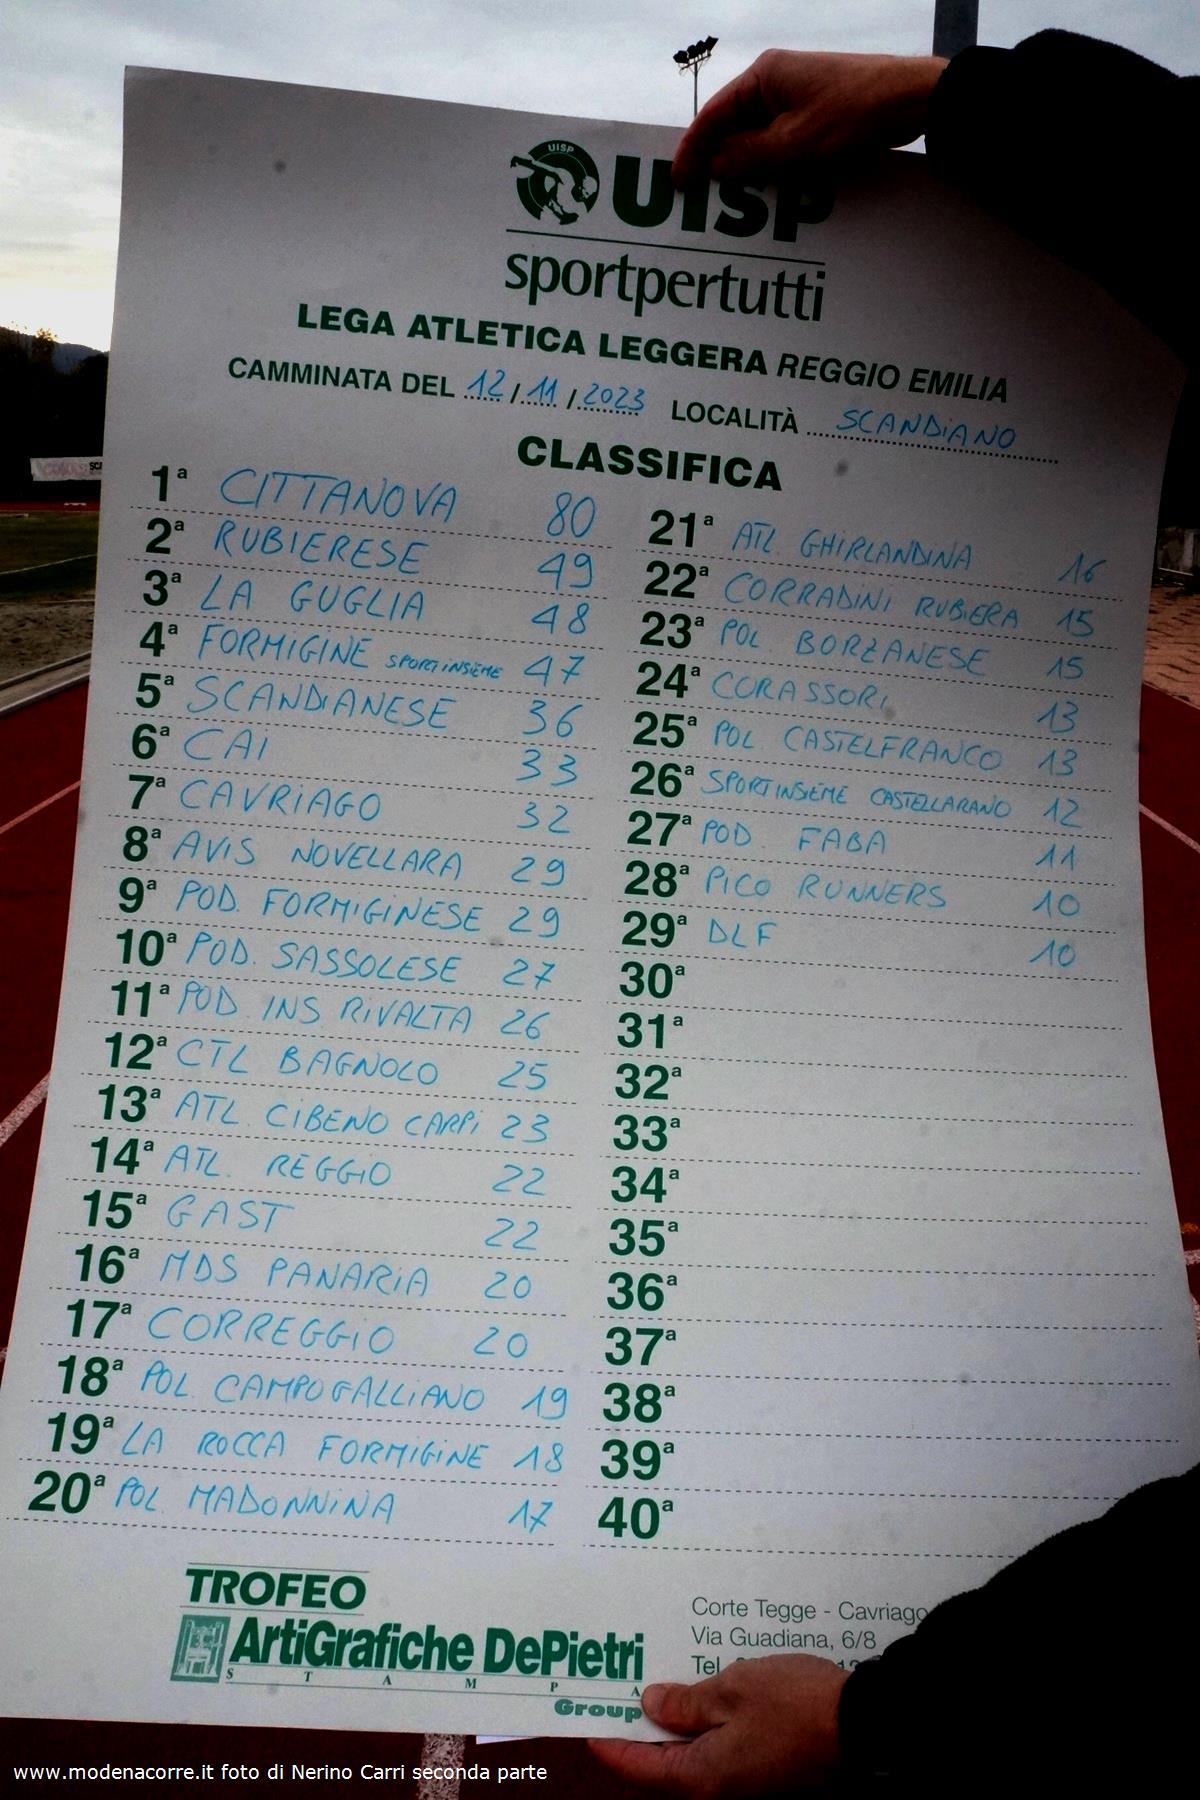 UISP
UISP
sportpertutti
LEGA ATLETICA LEGGERA REGGIO EMILIA
CAMMINATA DEL 12/11/2023 LOCALITÀ SCANDIANO
CLASSIFICA
1ª CITTANOVA 80
2ª RUBIERESE 49
3ª LA GUGLIA 48
4ª FORMIGINE SPORTINSIEME 47
5ª SCANDIANESE 36
6ª CAI 33
7ª CAVRIAGO 32
8ª AVIS NOVELLARA 29
9ª POD. FORMIGINESE 29
10ª POD. SASSOLESE 27
11ª POD INS RIVALTA 26
12ª CTL BAGNOLO 25
13ª ATL. CIBENO CARPI 23
14ª ATL. REGGIO 22
15ª GAST 22
16ª MDS PANARIA 20
17ª CORREGGIO 20
18ª POL. CAMPOGALLIANO 19
19ª LA ROCCA FORMIGINE 18
20ª POL. MADONNINA 17
21ª ATL. GHIRLANDINA 16
22ª CORRADINI RUBIERA 15
23ª POL BORZANESE 15
24ª CORASSORI 13
25ª POL CASTELFRANCO 13
26ª SPORTINSIEME CASTELLARANO 12
27ª POD. FABA 11
28ª PICO RUNNERS 10
29ª DLF 10
30ª
31ª
32ª
33ª
34ª
35ª
36ª
37ª
38ª
39ª
40ª
TROFEO
ArtiGrafiche DePietri
STAMPA
Group
Corte Tegge - Cavriago
Via Guadiana, 6/8
Tel.
www.modenacorre.it foto di Nerino Carri seconda parte